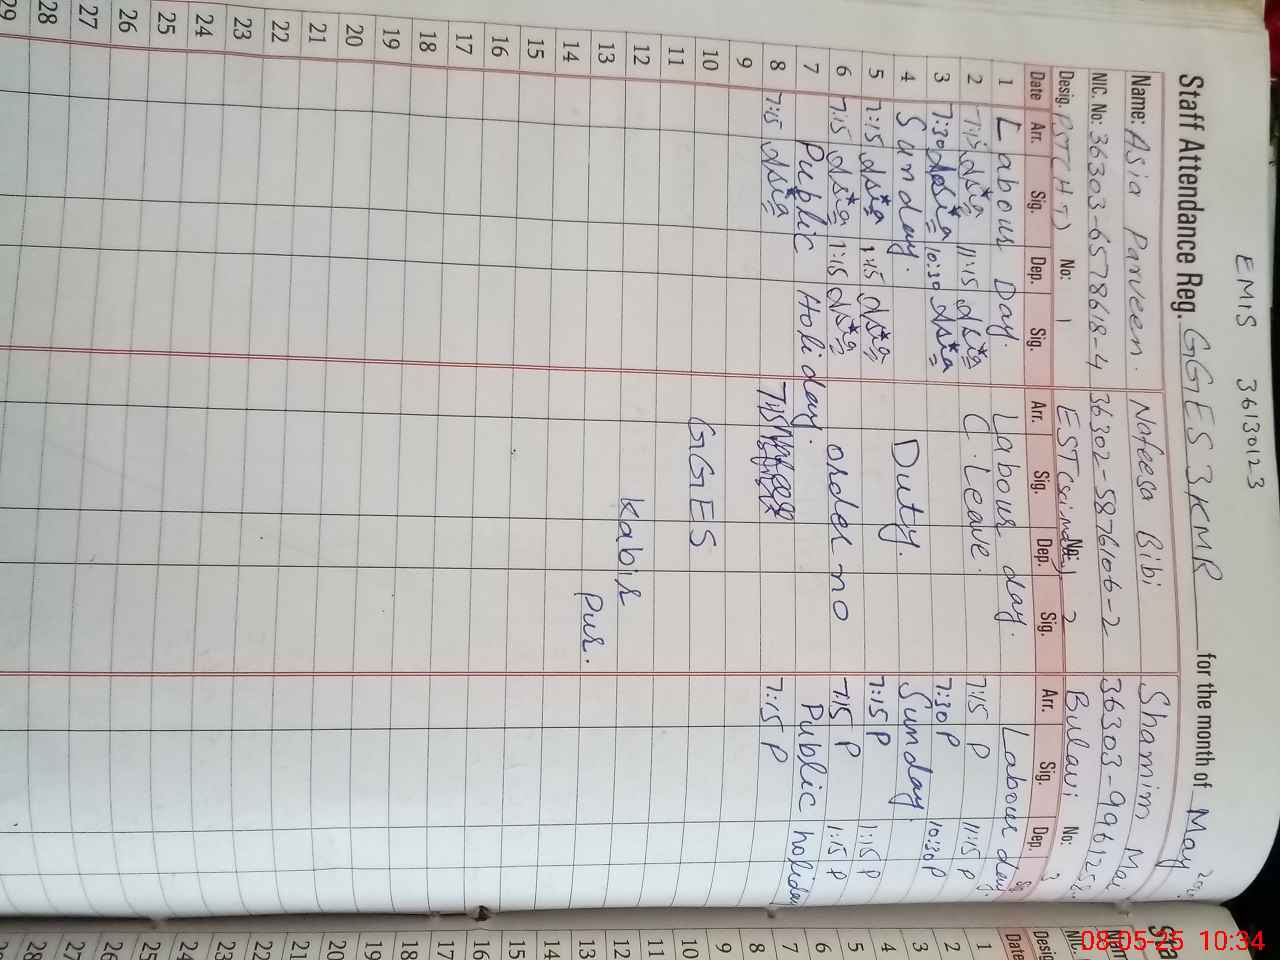 EMIS 36130123
Staff Attendance Reg. GGES 3 KMR for the month of May
Name: Asia Parveen. Nafeesa Bibi Shamim Mai
NIC. No: 36303-6578618-4 36302-5876106-2 36303-996125
Desig. PST(H.T) No: 1 EST No: 2 Bulavi No: 3
Date Arr. Sig. Dep. Sig. Arr. Sig. Dep. Sig. Arr. Sig. Dep.
1 Labour Day. Labour day. Labour day
2 7:15 Asia 11:15 Asia C. Leave. 7:15 P 11:15 P
3 7:30 Asia 10:30 Asia 7:30 P 10:30 P
4 Sunday. Duty. Sunday.
5 7:15 Asia 1:15 Asia 7:15 P 1:15 P
6 7:15 Asia 1:15 Asia order no 7:15 P 1:15 P
7 Public Holiday. Public holiday
8 7:15 Asia 7:15 7:15 P
9
10 GGES
11
12 Kabir
13 Pur.
14
15
16
17
18
19
20
21
22
23
24
25
26
27
28
29
Date
Desig
NIC.
Sta
1
2
3
4
5
6
7
8
9
10
11
12
13
14
15
16
17
18
19
20
21
22
23
24
25
26
27
28
08-05-25 10:34